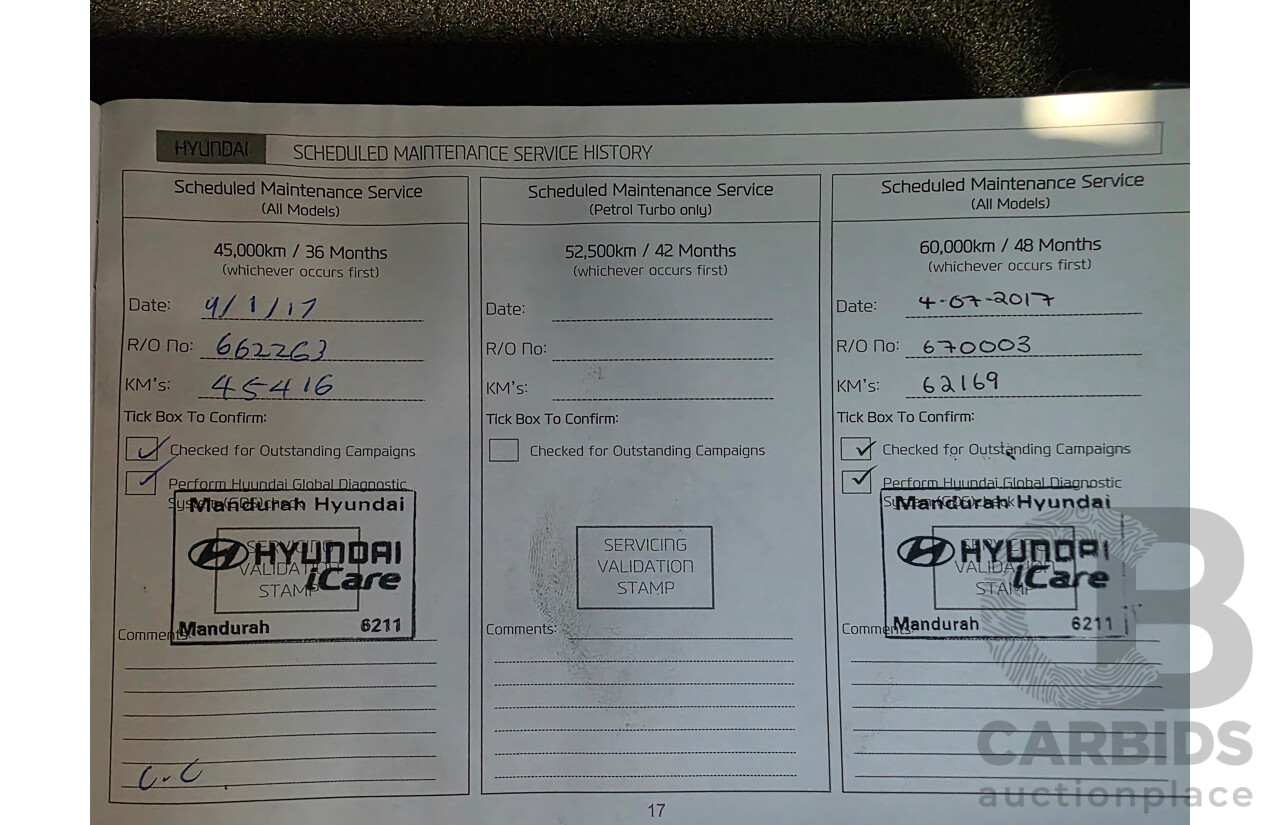 HYUNDAI SCHEDULED MAINTENANCE SERVICE HISTORY
Scheduled Maintenance Service
(All Models)
45,000km / 36 Months
(whichever occurs first)
Date: 9/1/17
R/O No: 662263
KM's: 45416
Tick Box To Confirm:
Checked for Outstanding Campaigns
Perform Hyundai Global Diagnostic
System (GDS) check
Mandurah Hyundai
SERVICING
VALIDATION
STAMP
HYUNDAI
iCare
Mandurah 6211
Comments:
C.C
Scheduled Maintenance Service
(Petrol Turbo only)
52,500km / 42 Months
(whichever occurs first)
Date:
R/O No:
KM's:
Tick Box To Confirm:
Checked for Outstanding Campaigns
SERVICING
VALIDATION
STAMP
Comments:
Scheduled Maintenance Service
(All Models)
60,000km / 48 Months
(whichever occurs first)
Date: 4-07-2017
R/O No: 670003
KM's: 62169
Tick Box To Confirm:
Checked for Outstanding Campaigns
Perform Hyundai Global Diagnostic
System (GDS) check
Mandurah Hyundai
VALIDATION
STAMP
HYUNDAI
iCare
Mandurah 6211
Comments:
17
CARBIDS
auctionplace